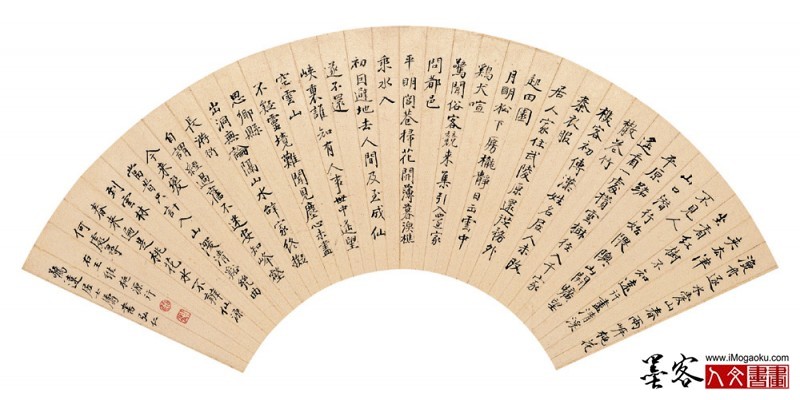 漁舟逐水愛山春兩岸桃花
夾去津
坐看紅樹不知遠行盡清溪
不見人
山口潛行始隈隩山開曠望
平原
攢雲樹近入千家
散花竹
樵客初傳漢姓名居人未改
秦衣服
居人家住武陵源還從物外
起田園
月明松下房櫳靜日出雲中
鷄犬喧
驚聞俗客競來集引入還家
問都邑
平明閭巷掃花開薄暮漁樵
乘水入
初因避地去人間及至成仙
遂不還
峽裏誰知有人事世中遙望
空雲山
不疑靈境難聞見塵心未盡
思鄉縣
出洞無論隔山水辭家終擬
長游衍
自謂經過舊不迷安知峰壑
今來變
當時只記入山深清溪幾曲
到雲林
春來遍是桃花水不辨仙源
何處尋
右王維桃源行
居士
墨客
www.iMogaoku.com
人文書畫